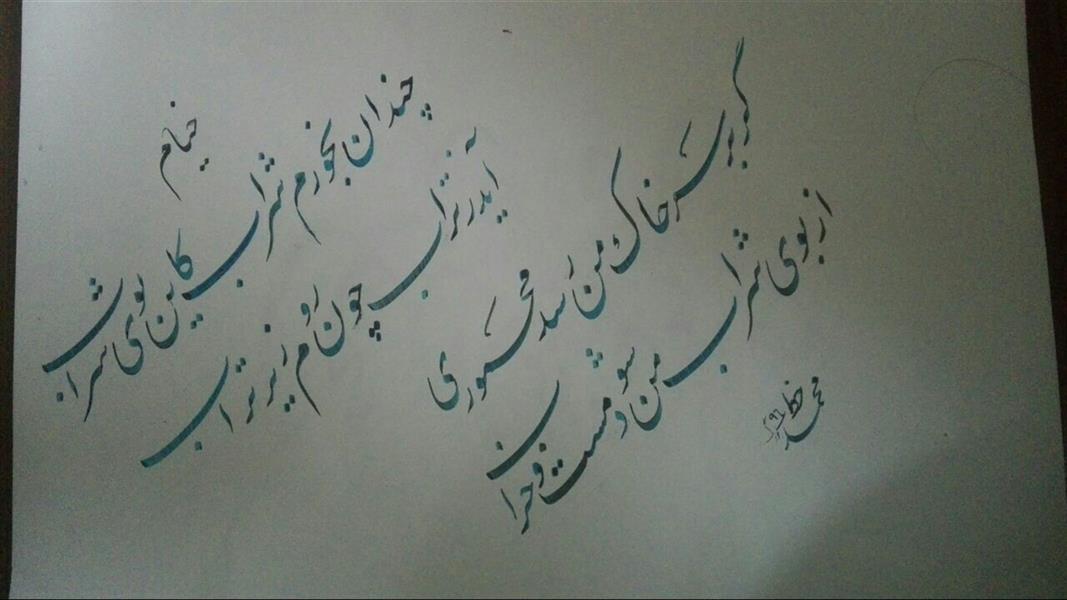 خیام
چندان بخورم شراب کاین بوی شراب
آید ز تراب چون روم زیر تراب
گر بر سر خاک من رسد مخموری
از بوی شراب من شود مست و خراب
محمد